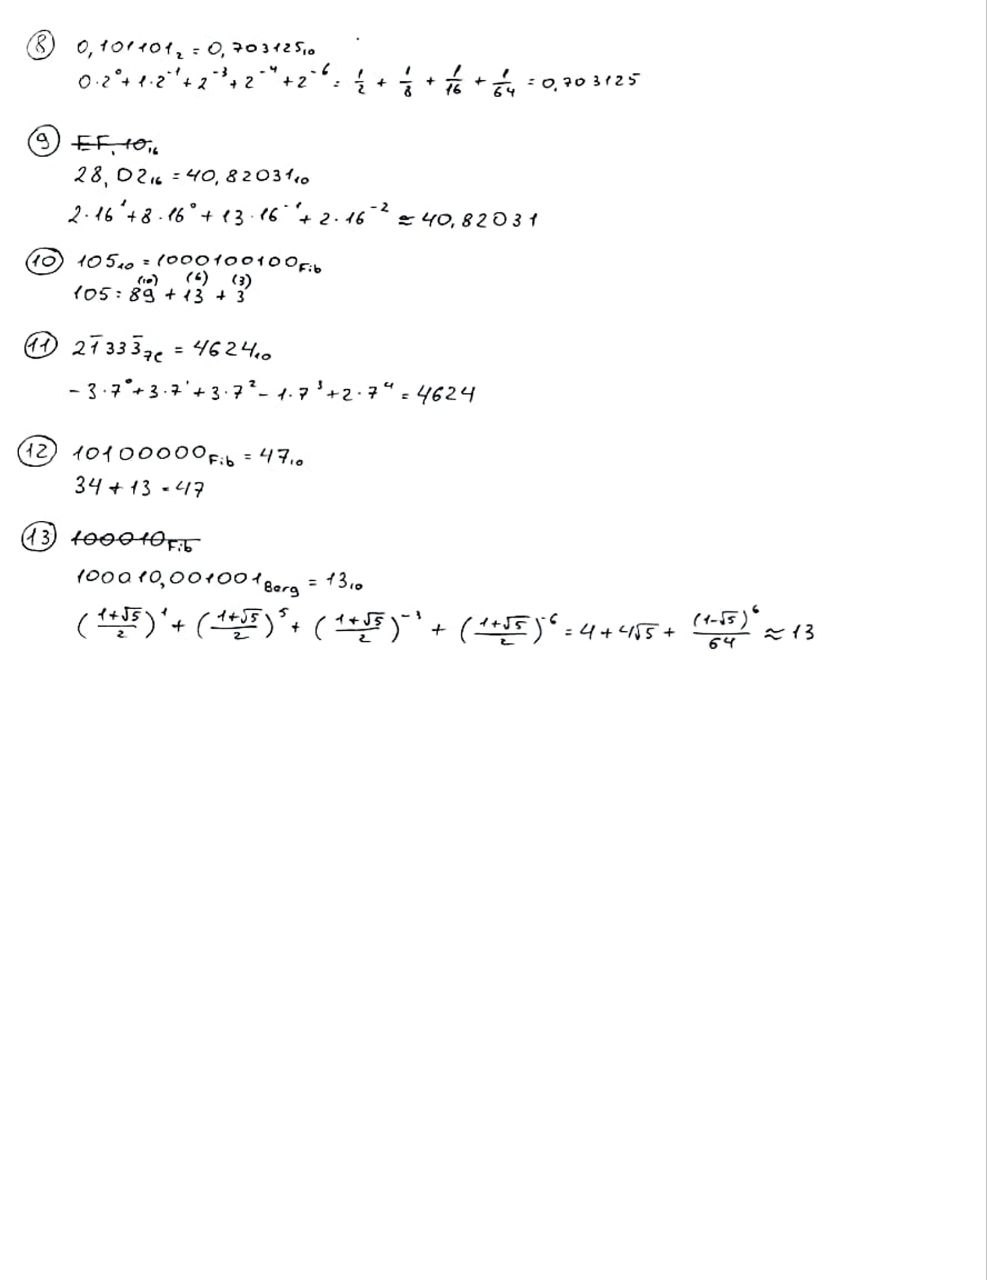 8 0,101101₂ = 0,703125₁₀
0·2⁰+1·2⁻¹+2⁻³+2⁻⁴+2⁻⁶ = 1/2 + 1/8 + 1/16 + 1/64 = 0,703125
9 EF,10₁₆
28,D2₁₆ = 40,82031₁₀
2·16¹+8·16⁰+13·16⁻¹+2·16⁻² ≈ 40,82031
10 105₁₀ = 1000100100Fib
(10) (6) (3)
105 = 89 + 13 + 3
11 21̅333̅7C = 4624₁₀
-3·7⁰+3·7¹+3·7²-1·7³+2·7⁴ = 4624
12 10100000Fib = 47₁₀
34 + 13 = 47
13 100010Fib
100010,001001Berg = 13₁₀
((1+√5)/2)¹ + ((1+√5)/2)⁵ + ((1+√5)/2)⁻³ + ((1+√5)/2)⁻⁶ = 4+4√5 + (1-√5)⁶/64 ≈ 13